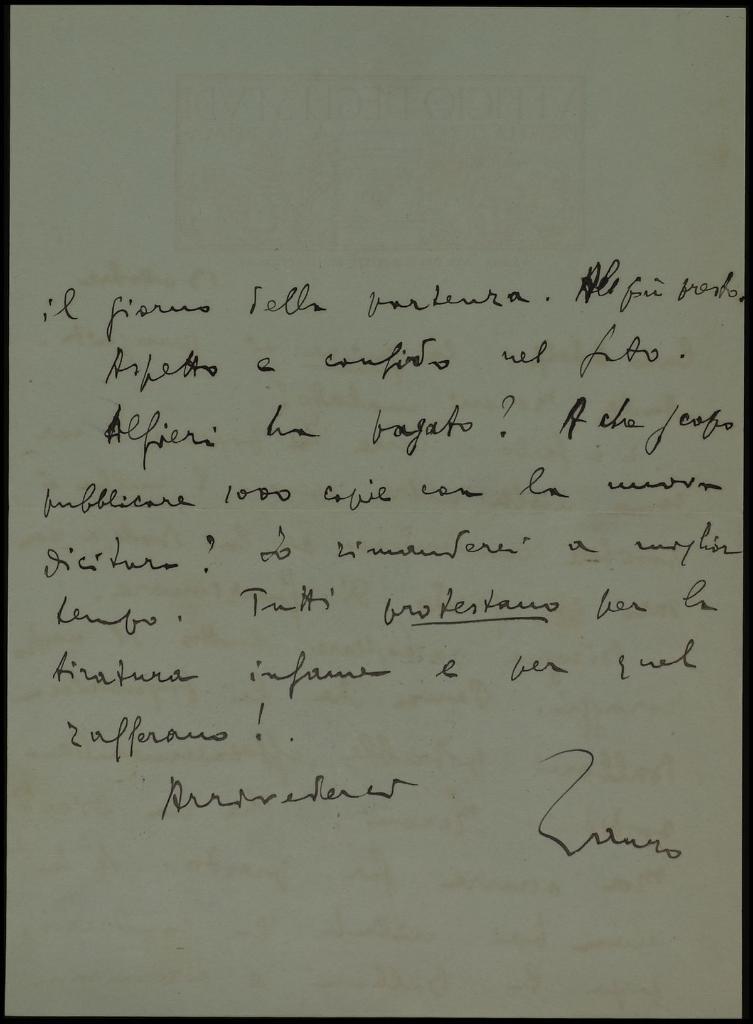 il giorno della partenza. Al più presto.
Aspetto e confido nel fato.
Alfieri ha pagato? A che scopo
pubblicare 1000 copie con la nuova
dicitura? Io rimanderei a miglior
tempo. Tutti protestano per la
tiratura infame e per quel
zafferano!.
Arrivederci